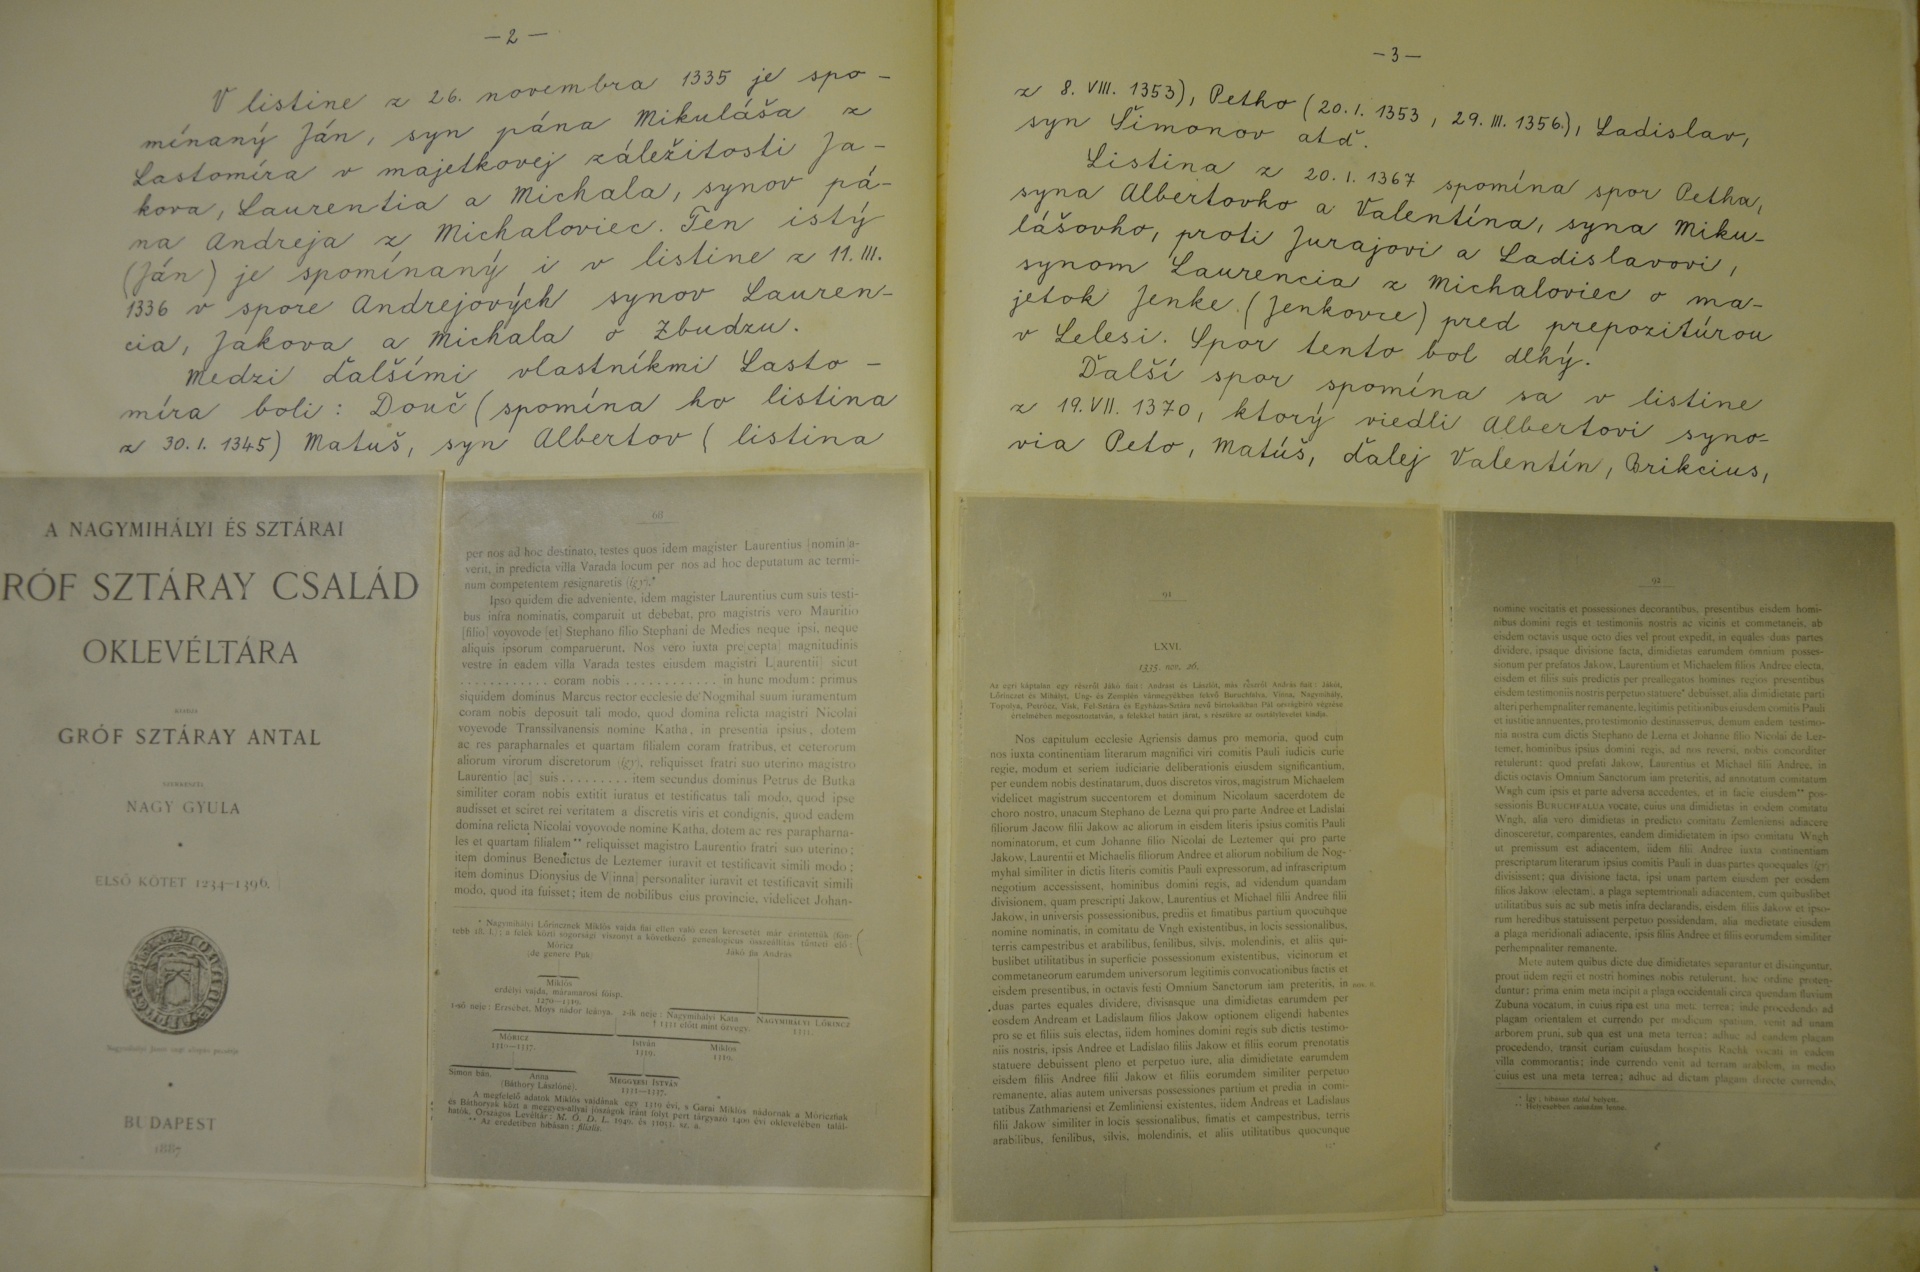 — 2 —
V listine z 26. novembra 1335 je spo-
mínaný Ján, syn pána Mikuláša z
Lastomíra v majetkovej záležitosti Ja-
kova, Laurentia a Michala, synov pá-
na Andreja z Michaloviec. Ten istý
(Ján) je spomínaný i v listine z 11. III.
1336 v spore Andrejových synov Lauren-
cia, Jakova a Michala o Zbudzu.
Medzi ďalšími vlastníkmi Lasto-
míra boli: Douč (spomína ho listina
z 30. I. 1345) Matuš, syn Albertov (listina
A NAGYMIHÁLYI ÉS SZTÁRAI
RÓF SZTÁRAY CSALÁD
OKLEVÉLTÁRA
GRÓF SZTÁRAY ANTAL
NAGY GYULA
ELSŐ KÖTET 1234–1396.
BUDAPEST
1887
68
per nos ad hoc destinato, testes quos idem magister Laurentius [nomin]a-
verit, in predicta villa Varada locum per nos ad hoc deputatum ac termi-
num competentem resignaretis (így).*
Ipso quidem die adveniente, idem magister Laurentius cum suis testi-
bus infra nominatis, comparuit ut debebat, pro magistris vero Mauritio
[filio] voyovode [et] Stephano filio Stephani de Medies neque ipsi, neque
aliquis ipsorum comparuerunt. Nos vero iuxta pre[cepta] magnitudinis
vestre in eadem villa Varada testes eiusdem magistri L[aurentii] sicut
............ coram nobis ............ in hunc modum: primus
siquidem dominus Marcus rector ecclesie de Nogmihal suum iuramentum
coram nobis deposuit tali modo, quod domina relicta magistri Nicolai
voyevode Transsilvanensis nomine Katha, in presentia ipsius, dotem
ac res parapharnales et quartam filialem coram fratribus, et ceterorum
aliorum virorum discretorum (így), reliquisset fratri suo uterino magistro
Laurentio [ac] suis ......... item secundus dominus Petrus de Butka
similiter coram nobis extitit iuratus et testificatus tali modo, quod ipse
audisset et sciret rei veritatem a discretis viris et condignis, quod eadem
domina relicta Nicolai voyovode nomine Katha, dotem ac res parapharna-
les et quartam filialem** reliquisset magistro Laurentio fratri suo uterino;
item dominus Benedictus de Leztemer iuravit et testificavit simili modo;
item dominus Dionysius de V[inna] personaliter iuravit et testificavit simili
modo, quod ita fuisset; item de nobilibus eius provincie, videlicet Johan-
* Nagymihályi Lőrincznek Miklós vajda fiai ellen való ezen keresetét már érintettük (fön-
tebb ... l.); a felek közti sogorsági viszonyt a következő genealogicus összeállítás tünteti elő:
Móricz
(de genere Pok)
Jákó fia András
Miklós
erdélyi vajda, máramarosi főisp.
1270–1319.
1-ső neje: Erzsébet, Moys nádor leánya.
2-ik neje: Nagymihályi Kata
† 1331 előtt mint özvegy.
NAGYMIHÁLYI LŐRINCZ
1331.
MÓRICZ
1319–1337.
István
1319.
Miklós
1319.
Simon bán.
Anna
(Báthory Lászlóné).
MEGGYESI ISTVÁN
1331–1337.
A megfelelő adatok Miklós vajdának egy 1319 évi, a Garai Miklós nádornak a Móriczfiak
és Báthoryak közt a meggyes-allyai jószágok iránt folyt pert tárgyazó 1409 évi oklevelében talál-
hatók. Országos Levéltár: M. O. D. L. 1940. és 11053. sz. a.
** Az eredetiben hibásan: filialis.
— 3 —
z 8. VIII. 1353), Petho (20. I. 1353, 29. III. 1356), Ladislav,
syn Šimonov atď.
Listina z 20. I. 1367 spomína spor Petha,
syna Albertovho a Valentína, syna Miku-
lášovho, proti Jurajovi a Ladislavovi,
synom Laurencia z Michaloviec o ma-
jetok Jenke (Jenkovce) pred prepozitúrou
v Lelesi. Spor tento bol dlhý.
Ďalší spor spomína sa v listine
z 19. VII. 1370, ktorý viedli Albertovi syno-
via Peto, Matúš, ďalej Valentín, Brikcius,
91
LXVI.
1335. nov. 26.
Az egri káptalan egy részről Jákó fiait: Andrást és Lászlót, más részről András fiait: Jákót,
Lőrinczet és Mihályt, Ung- és Zemplén vármegyékben fekvő Buruchfalva, Vinna, Nagymihály,
Topolya, Petrócz, Visk, Fel-Sztára és Egyházas-Sztára nevű birtokaikban Pál országbíró végzése
értelmében megosztoztatván, a felekkel határt járat, s részükre az osztálylevelet kiadja.
Nos capitulum ecclesie Agriensis damus pro memoria, quod cum
nos iuxta continentiam literarum magnifici viri comitis Pauli iudicis curie
regie, modum et seriem iudiciarie deliberationis eiusdem significantium,
per eundem nobis destinatarum, duos discretos viros, magistrum Michaelem
videlicet magistrum succentorem et dominum Nicolaum sacerdotem de
choro nostro, unacum Stephano de Lezna qui pro parte Andree et Ladislai
filiorum Jacow filii Jakow ac aliorum in eisdem literis ipsius comitis Pauli
nominatorum, et cum Johanne filio Nicolai de Leztemer qui pro parte
Jakow, Laurentii et Michaelis filiorum Andree et aliorum nobilium de Nog-
myhal similiter in dictis literis comitis Pauli expressorum, ad infrascriptum
negotium accessissent, hominibus domini regis, ad videndum quandam
divisionem, quam prescripti Jakow, Laurentius et Michael filii Andree filii
Jakow, in universis possessionibus, prediis et fimatibus partium quocunque
nomine nominatis, in comitatu de Vngh existentibus, in locis sessionalibus,
terris campestribus et arabilibus, fenilibus, silvis, molendinis, et aliis qui-
buslibet utilitatibus in superficie possessionum existentibus, vicinorum et
commetaneorum earumdem universorum legitimis convocationibus factis et
eisdem presentibus, in octavis festi Omnium Sanctorum iam preteritis, in
duas partes equales dividere, divisasque una dimidietas earumdem per
eosdem Andream et Ladislaum filios Jakow optionem eligendi habentes
pro se et filiis suis electas, iidem homines domini regis sub dictis testimo-
niis nostris, ipsis Andree et Ladislao filiis Jakow et filiis eorum prenotatis
statuere debuissent pleno et perpetuo iure, alia dimidietate earumdem
eisdem filiis Andree filii Jakow et filiis eorumdem similiter perpetuo
remanente, alias autem universas possessiones partium et predia in comi-
tatibus Zathmariensi et Zemliniensi existentes, iidem Andreas et Ladislaus
filii Jakow similiter in locis sessionalibus, fimatis et campestribus, terris
arabilibus, fenilibus, silvis, molendinis, et aliis utilitatibus quocunque
92
nomine vocitatis et possessiones decorantibus, presentibus eisdem homi-
nibus domini regis et testimoniis nostris ac vicinis et commetaneis, ab
eisdem octavis usque octo dies vel prout expedit, in equales duas partes
dividere, ipsaque divisione facta, dimidietas earumdem omnium posses-
sionum per prefatos Jakow, Laurentium et Michaelem filios Andree electa,
eisdem et filiis suis predictis per preallegatos homines regios presentibus
eisdem testimoniis nostris perpetuo statuere* debuisset, alia dimidietate parti
alteri perhempnaliter remanente, legitimis petitionibus eiusdem comitis Pauli
et iustitie annuentes, pro testimonio destinassemus, demum eadem testimo-
nia nostra cum dictis Stephano de Lezna et Johanne filio Nicolai de Lez-
temer, hominibus ipsius domini regis, ad nos reversi, nobis concorditer
retulerunt: quod prefati Jakow, Laurentius et Michael filii Andree, in
dictis octavis Omnium Sanctorum iam preteritis, ad annotatum comitatum
Wngh cum ipsis et parte adversa accedentes, et in facie eiusdem** pos-
sessionis BURUCHFALUA vocate, cuius una dimidietas in eodem comitatu
Wngh, alia vero dimidietas in predicto comitatu Zemleniensi adiacere
dinosceretur, comparentes, eandem dimidietatem in ipso comitatu Wngh
ut premissum est adiacentem, iidem filii Andree iuxta continentiam
prescriptarum literarum ipsius comitis Pauli in duas partes quoequales (így)
divisissent; qua divisione facta, ipsi unam partem eiusdem per eosdem
filios Jakow [electam], a plaga septemtrionali adiacentem, cum quibuslibet
utilitatibus suis ac sub metis infra declarandis, eisdem filiis Jakow et ipso-
rum heredibus statuissent perpetuo possidendam, alia medietate eiusdem
a plaga meridionali adiacente, ipsis filiis Andree et filiis eorumdem similiter
perhempnaliter remanente.
Mete autem quibus dicte due dimidietates separantur et distinguntur,
prout iidem regii et nostri homines nobis retulerunt, hoc ordine proten-
duntur: prima enim meta incipit a plaga occidentali circa quendam fluvium
Zubuna vocatum, in cuius ripa est una meta terrea; inde procedendo ad
plagam orientalem et currendo per modicum spatium, venit ad unam
arborem pruni, sub qua est una meta terrea; adhuc ad eandem plagam
procedendo, transit curiam cuiusdam hospitis Rachk vocati in eadem
villa commorantis; inde currendo venit ad terram arabilem, in medio
cuius est una meta terrea; adhuc ad dictam plagam directe currendo,
* Így; hibásan statui helyett.
** Helyesebben eiusdem helyett.